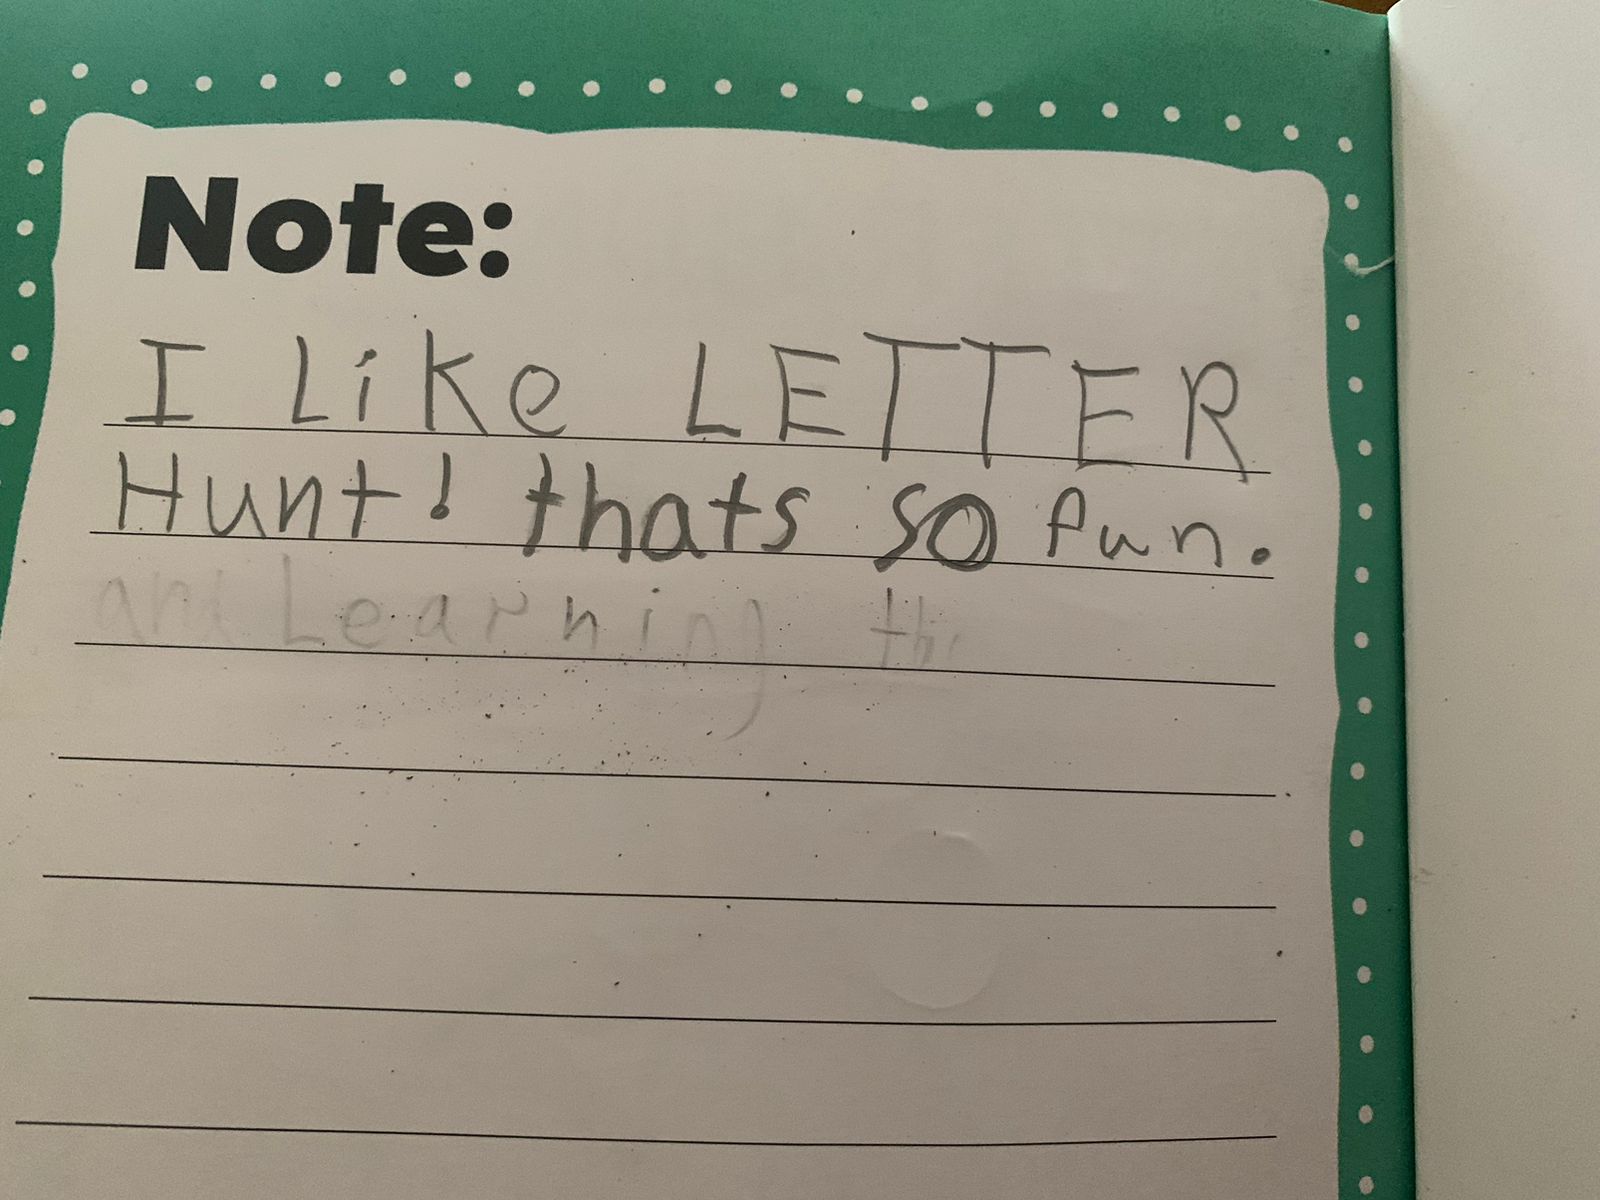 Note:
I Like LETTER
Hunt! thats so fun.
and Learning